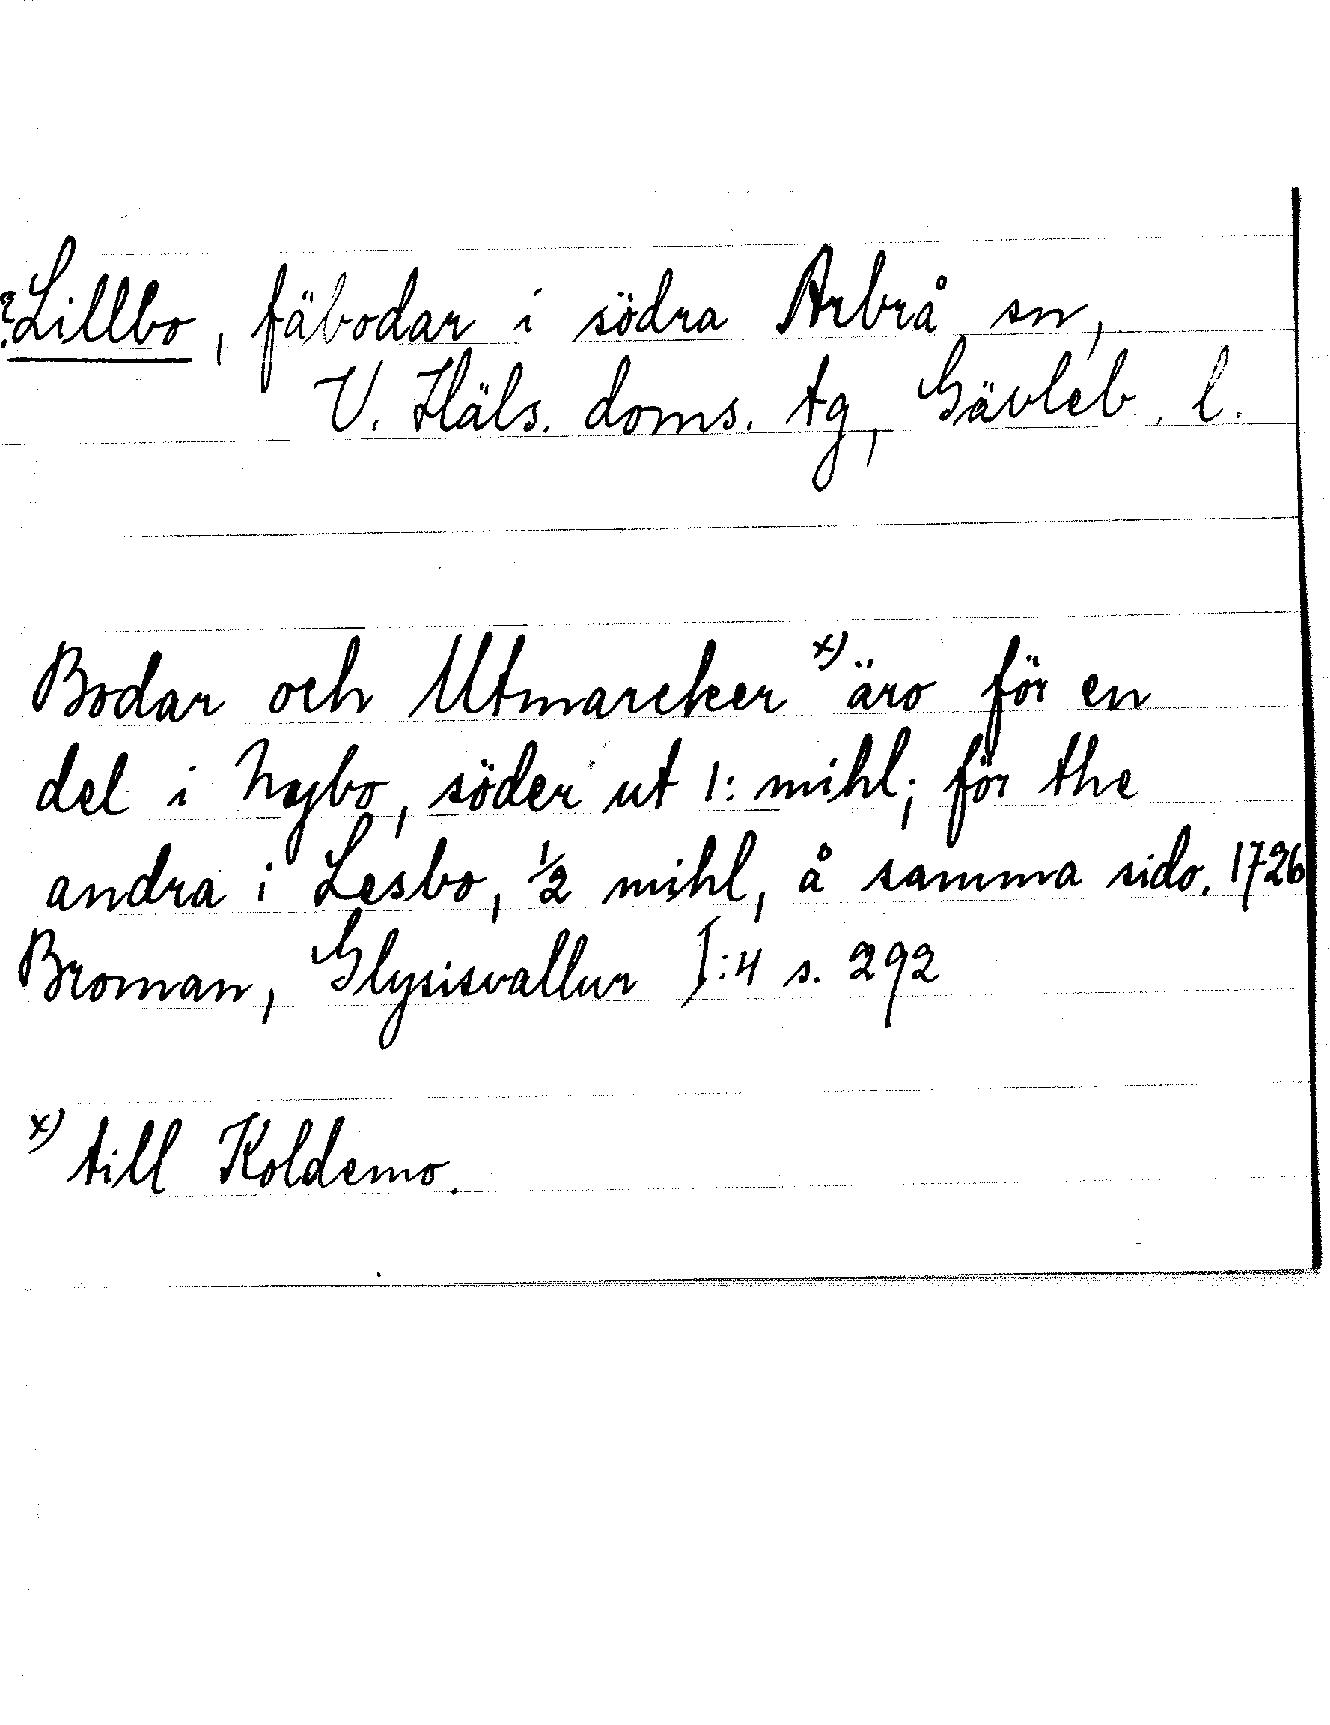 ?Lillbo, fäbodar i södra Arbrå sn,
V. Häls. doms. tg, Gävleb. l.
Bodar och Utmarcker x) äro för en
del i Nybo, söder ut 1: mihl; för the
andra i Lesbo, ½ mihl, å samma sido. 1726
Broman, Glysisvallur I:4 s. 292
x) till Koldemo.